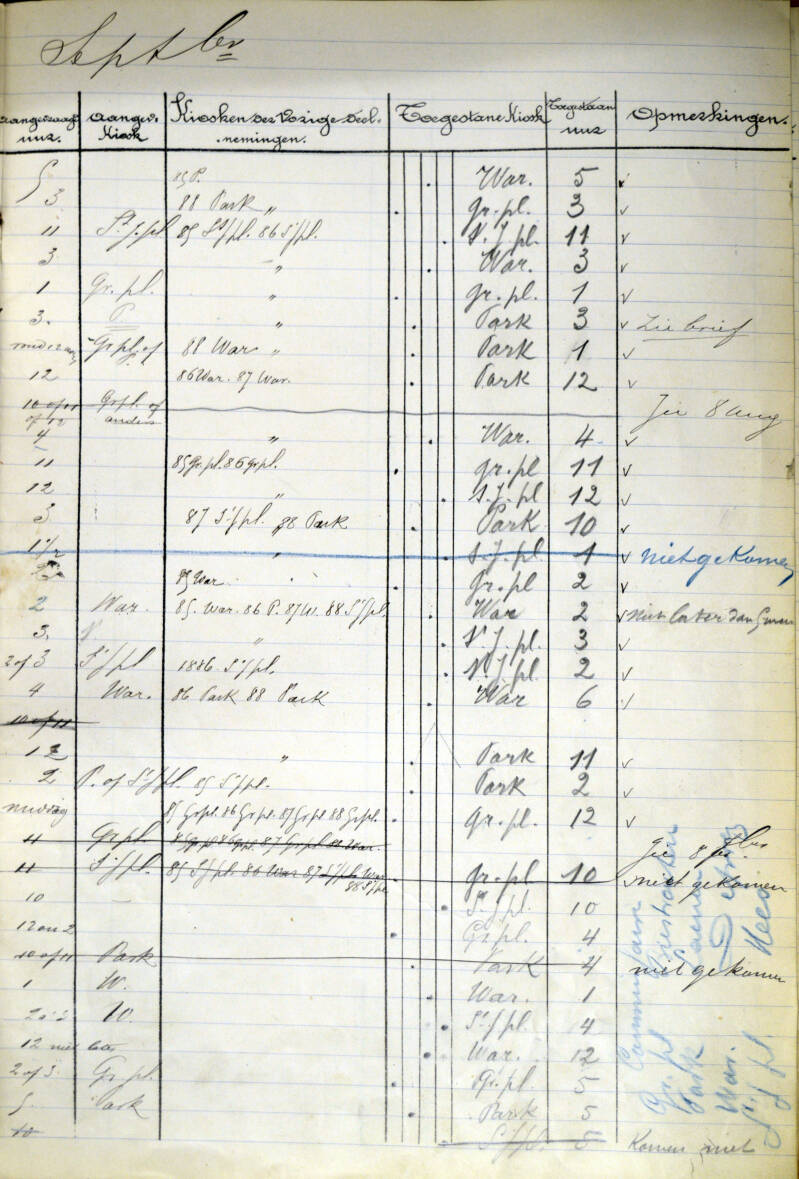 Septbr
aangevraagd uur. aangev. Kiosk Kiosken der Vorige Deelnemingen. Toegestane Kiosk Toegestaan uur Opmerkingen.
5 85 P. War. 5 ✓
3 88 Park „ gr. pl. 3 ✓
11 St J. pl 85 St J pl. 86 St J pl. S. J. pl. 11 ✓
3 „ War. 3 ✓
1 Gr. pl. „ gr. pl. 1 ✓
3. P „ Park 3 ✓ Zie brief
Gr pl. of 88 War „ Park 1 ✓
12 86 War. 87 War. Park 12 ✓
10 of 11 Gr pl. of Zie 8 Aug
of 12 anders
4 „ War. 4 ✓
11 85 Gr. pl. 86 Gr pl. gr. pl 11 ✓
12 „ S. J. pl 12 ✓
3 87 St J pl. 88 Park Park 10 ✓
1 1/2 „ S. J. pl. 1 ✓ niet gekomen
85 War gr. pl 2 ✓
2 War. 85. War. 86 P. 87 W. 88 St J pl. War 2 ✓ niet later dan
3. „ S. J. pl. 3 ✓
2 of 3 St J pl 1886 St J pl. S. J. pl. 2 ✓
4 War. 86 Park 88 Park War 6 ✓
10 of 11
12 „ Park 11 ✓
2 P. of St J pl. 85 St J pl. Park 2 ✓
middag 85 Gr pl. 86 Gr pl. 87 Gr pl 88 Gr pl. gr. pl. 12 ✓
11 Gr pl. 85 Gr pl 86 Gr pl. 87 Gr pl 88 War. Zie 8 7bre
11 St J pl. 85 St J pl. 86 War 87 St J pl. War 88 St J pl gr. pl 10 niet gekomen
10 – St J pl. 10
12 on 2 Gr pl. 4
10 of 11 Park Park 4 niet gekomen
1 W. War. 1
W. St J pl. 4
12 War. 12
2 of 3 Gr pl. Gr. pl. 5
5 Park Park 5
10 St J pl. 5 Komen niet
Gr. pl
Park
War.
St J pl